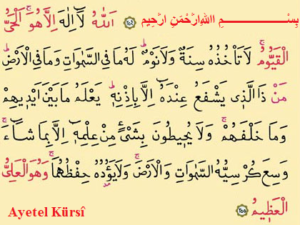 بِسْمِ اللهِ الرَّحْمٰنِ الرَّحِيمِ اَللّٰهُ لَٓا اِلٰهَ اِلَّا هُوَۚ اَلْحَيُّ
الْقَيُّومُۚ لَا تَأْخُذُهُ سِنَةٌ وَلَا نَوْمٌۜ لَهُ مَا فِي السَّمٰوَاتِ وَمَا فِي الْاَرْضِۜ
مَنْ ذَا الَّذِي يَشْفَعُ عِنْدَهُٓ اِلَّا بِاِذْنِهِۜ يَعْلَمُ مَا بَيْنَ اَيْدِيهِمْ
وَمَا خَلْفَهُمْۚ وَلَا يُحِيطُونَ بِشَيْءٍ مِنْ عِلْمِهِٓ اِلَّا بِمَا شَٓاءَۚ
وَسِعَ كُرْسِيُّهُ السَّمٰوَاتِ وَالْاَرْضَۚ وَلَا يَؤُ۫دُهُ حِفْظُهُمَاۚ وَهُوَ الْعَلِيُّ
الْعَظِيمُ
Ayetel Kürsî